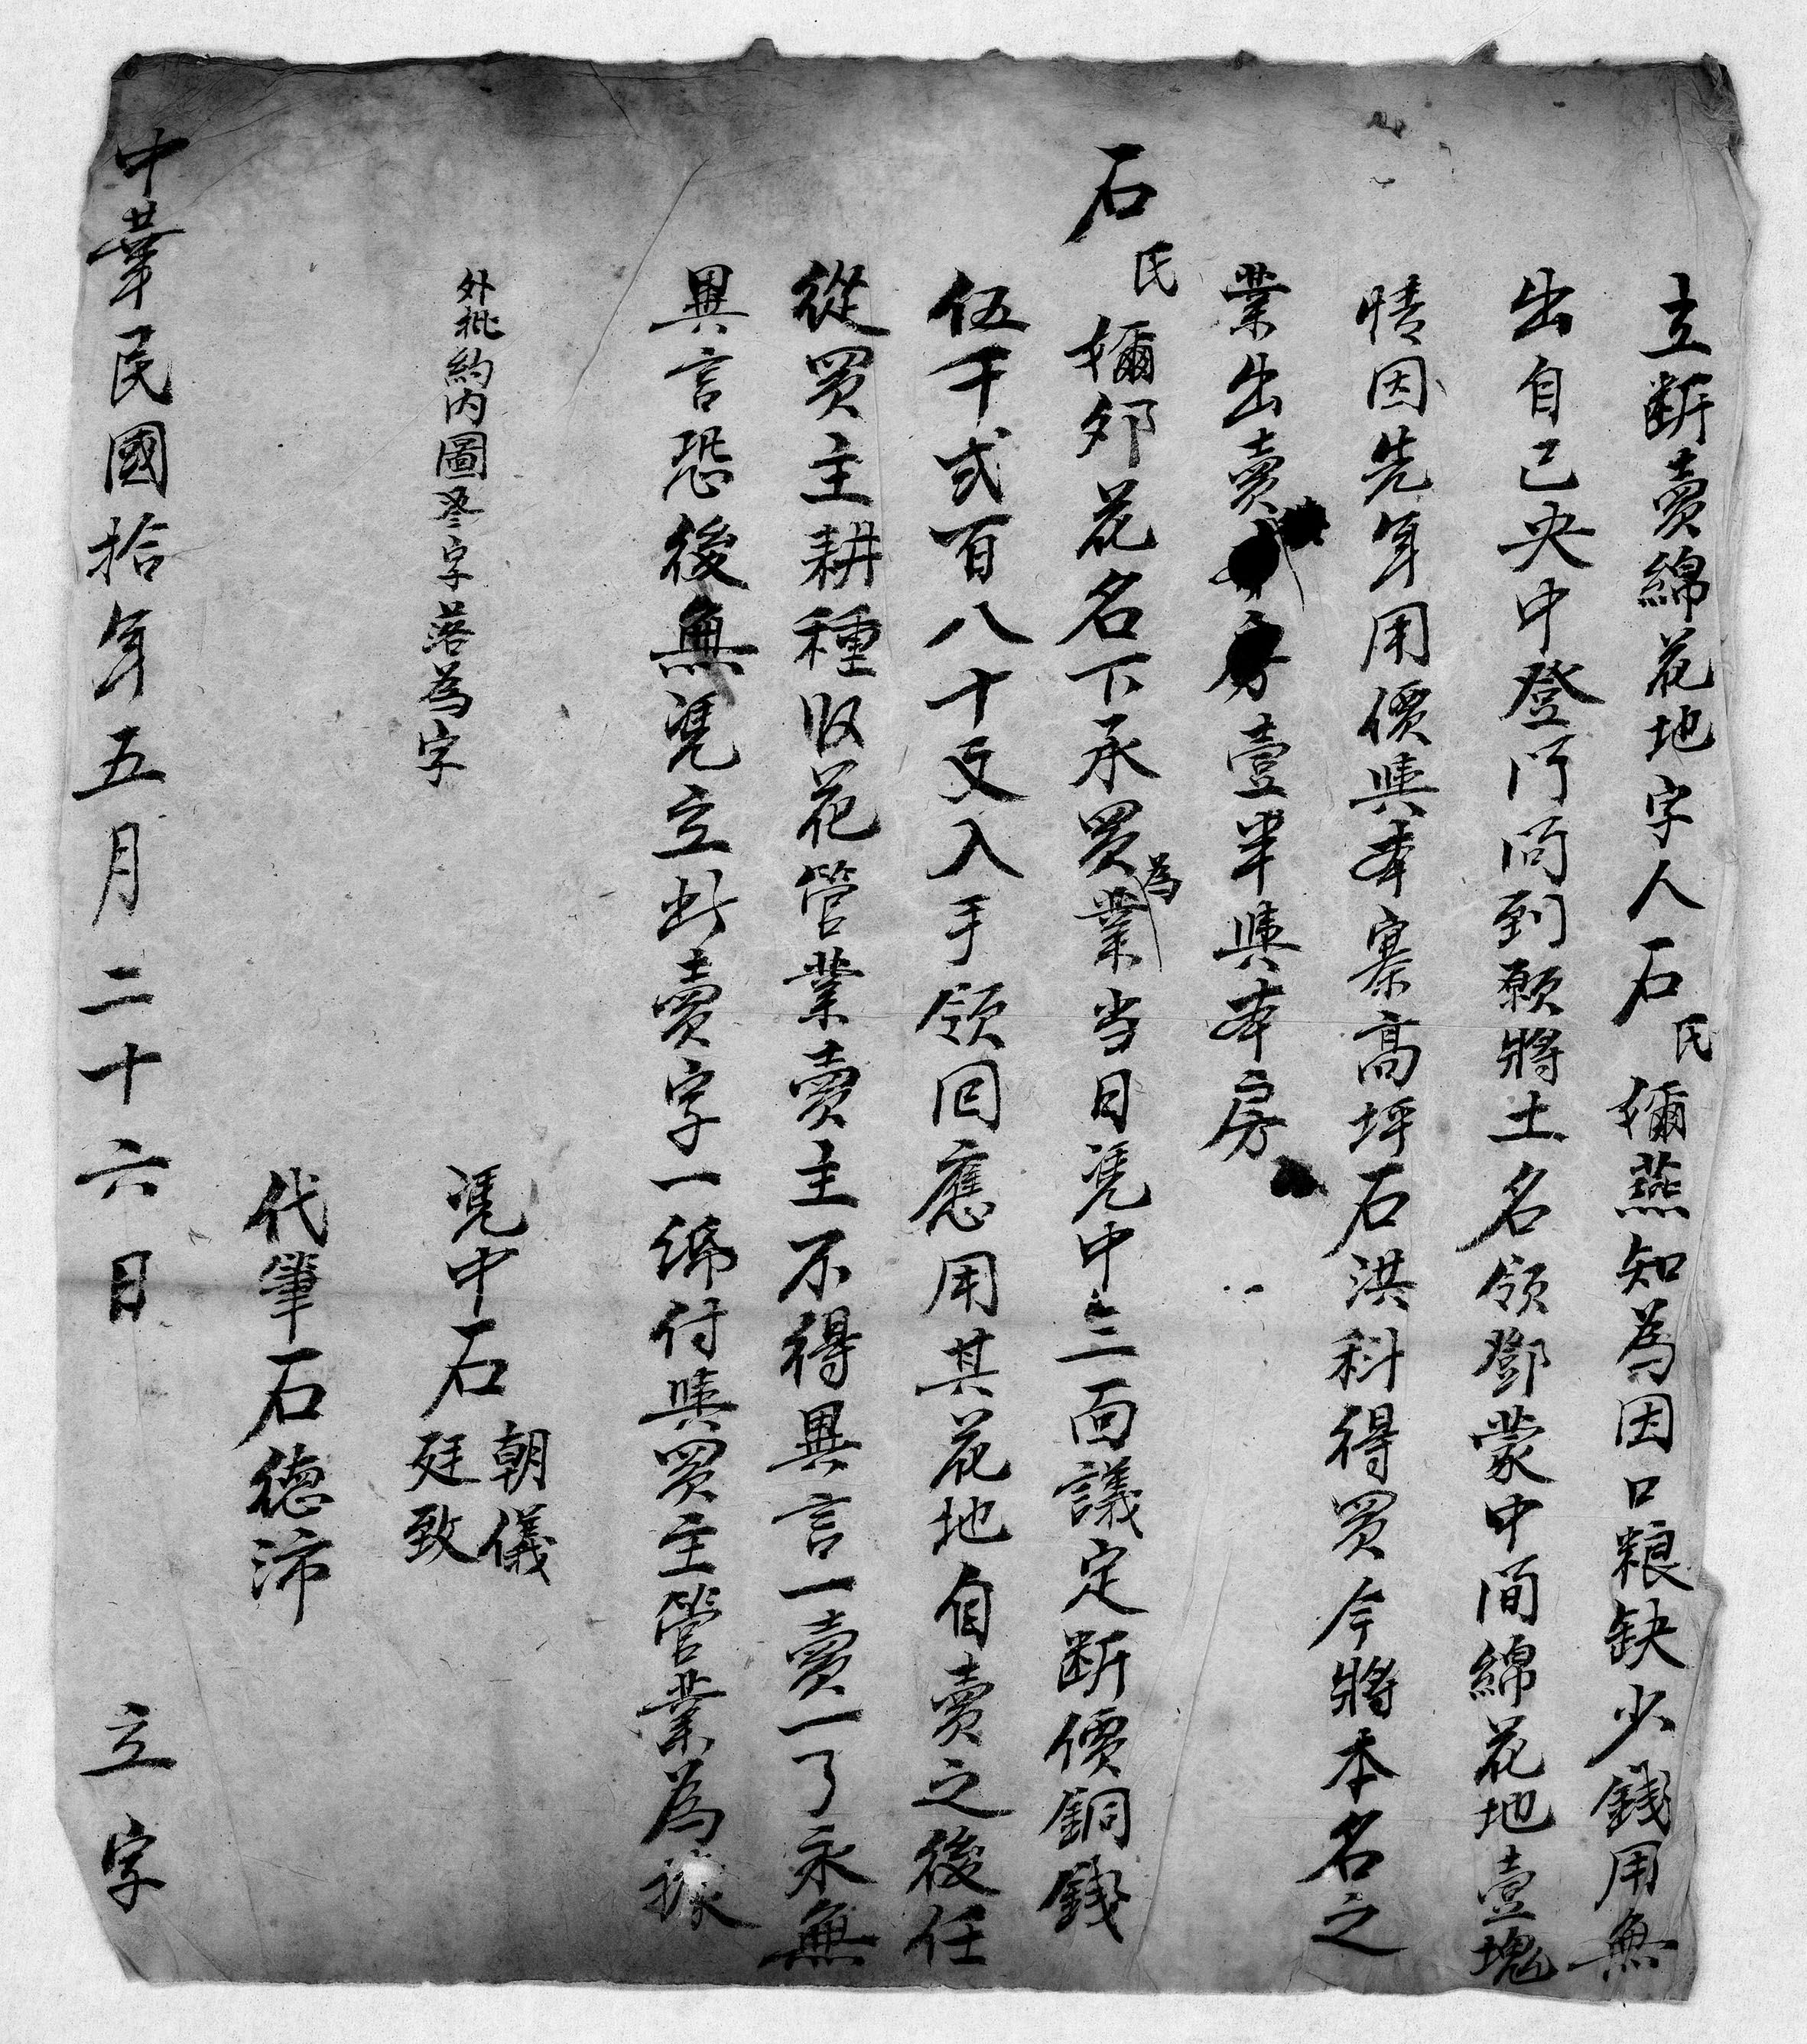 立断賣綿花地字人石氏㜷燕知為因口粮缺少錢用無
出自己央中登门问到願將土名領鄧蒙中间綿花地壹塊
情因先年用價與本寨高坪石洪科得買今將本名之
業出賣 壹半與本房
石氏㜷夘花名下承買為業当日凴中三面議定断價銅錢
伍千弍百八十文入手領回應用其花地自賣之後任
從買主耕種收花管業賣主不得異言一賣一了永無
異言恐後無凴立此賣字一紙付與買主管業為據
外批約内圖 字落為字
凴中石朝儀
廷致
代筆石德沛
中華民國拾年五月二十六日 立字